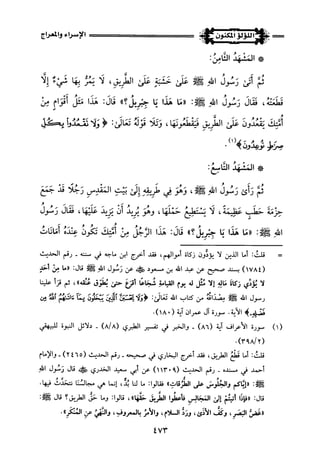 اللؤلؤ المكنون
الإسراء والمعراج
* المَشْهَدُ الثَّامِنُ:
ثُمَّ أَتَى رَسُولُ اللهِ ﷺ عَلَى خَشَبَةٍ عَلَى الطَّرِيقِ، لَا يَمُرُّ بِهَا شَيْءٌ إِلَّا
قَطَعَتْهُ، فَقَالَ رَسُولُ اللهِ ﷺ: «مَا هَذَا يَا جِبْرِيلُ؟» قَالَ: هَذَا مَثَلُ أَقْوَامٍ مِنْ
أُمَّتِكَ يَقْعُدُونَ عَلَى الطَّرِيقِ فَيَقْطَعُونَهَا، وَتَلَا قَوْلَهُ تَعَالَى: ﴿وَلَا تَقْعُدُوا بِكُلِّ
صِرَاطٍ تُوعِدُونَ﴾(١).
* المَشْهَدُ التَّاسِعُ:
ثُمَّ رَأَى رَسُولُ اللهِ ﷺ، وَهُوَ فِي طَرِيقِهِ إِلَى بَيْتِ المَقْدِسِ رَجُلًا قَدْ جَمَعَ
حِزْمَةَ حَطَبٍ عَظِيمَةً، لَا يَسْتَطِيعُ حَمْلَهَا، وَهُوَ يُرِيدُ أَنْ يَزِيدَ عَلَيْهَا، فَقَالَ رَسُولُ
اللهِ ﷺ: «مَا هَذَا يَا جِبْرِيلُ؟» قَالَ: هَذَا الرَّجُلُ مِنْ أُمَّتِكَ تَكُونُ عِنْدَهُ أَمَانَاتُ
= قلتُ: أما الذين لا يؤدُّون زكاة أموالهم، فقد أخرج ابن ماجه في سننه ـ رقم الحديث
(١٧٨٤) بسند صحيح عن عبد الله بن مسعود ﷺ عن رسول الله ﷺ قال: «ما مِنْ أحَدٍ
لا يُؤَدِّي زكاةَ مَالِهِ إلا مُثِّلَ له يوم القيامة شُجَاعًا أقرعَ حتى يُطَوِّقَ عُنُقَه»، ثم قرأ علينا
رسول الله ﷺ مِصْدَاقَهُ من كتاب الله تَعَالَى: ﴿وَلَا يَحْسَبَنَّ الَّذِينَ يَبْخَلُونَ بِمَا آتَاهُمُ اللَّهُ مِن
فَضْلِهِ﴾ الآية. سورة آل عمران آية (١٨٠).
(١) سورة الأعراف آية (٨٦) ـ والخبر في تفسير الطبري (٨/٨) ـ دلائل النبوة للبيهقي
(٣٩٨/٢)
قلتُ: أما قُطَّعُ الطريق، فقد أخرج البخاري في صحيحه ـ رقم الحديث (٢٤٦٥) ـ والإمام
أحمد في مسنده ـ رقم الحديث (١١٣٠٩) عن أبي سعيد الخدري ﷺ قال رسول الله
ﷺ: «إيَّاكم والجُلُوسَ على الطُّرقَاتِ» فقالوا: ما لنا بُدٌّ، إنما هي مجالسنا نتحدَّثُ فيها.
قال: «فإذا أتيتُمْ إلى المَجَالِسِ فأعطُوا الطريقَ حَقَّهَا»، قالوا: وما حَقُّ الطريق؟ قال ﷺ:
«غَضُّ البَصَرِ، وكَفُّ الأذَى، وردُّ السلام، والأمرُ بالمعروفِ، والنَّهيُ عن المُنْكَرِ».
٤٧٣